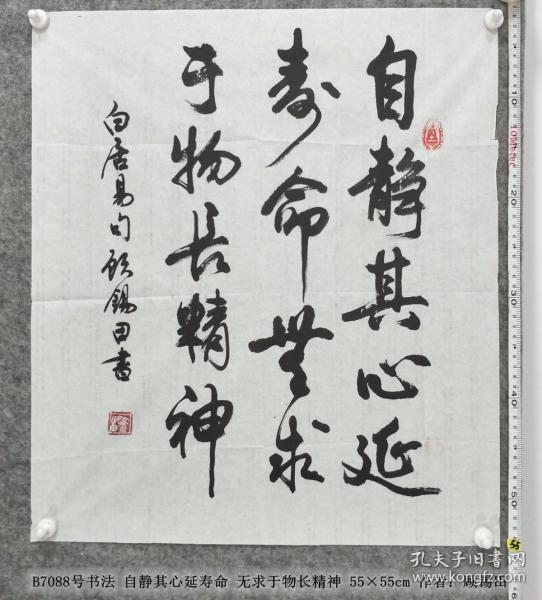 自静其心延
寿命無求
于物长精神
白居易句顾锡田书
10Meter
10
20
30
40
50
55
B7088号书法 自静其心延寿命 无求于物长精神 55×55cm 作者：顾锡田
孔夫子旧书网